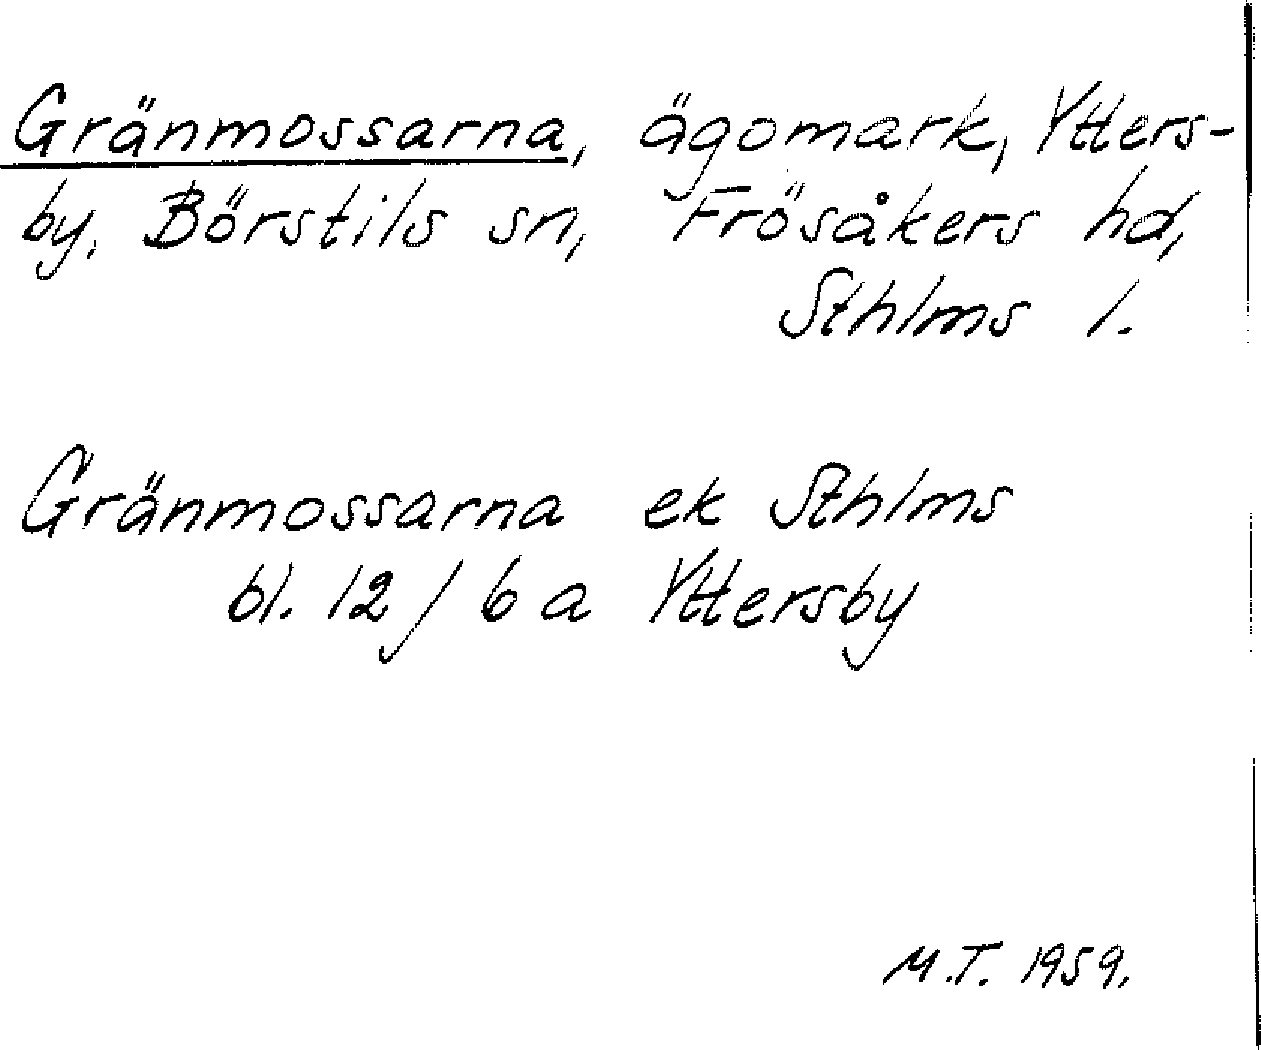 Gränmossarna, ägomark, Ytters-
by, Börstils sn, Frösåkers hd,
Sthlms l.
Gränmossarna ek Sthlms
bl. 12/6a Yttersby
M.T. 1959.